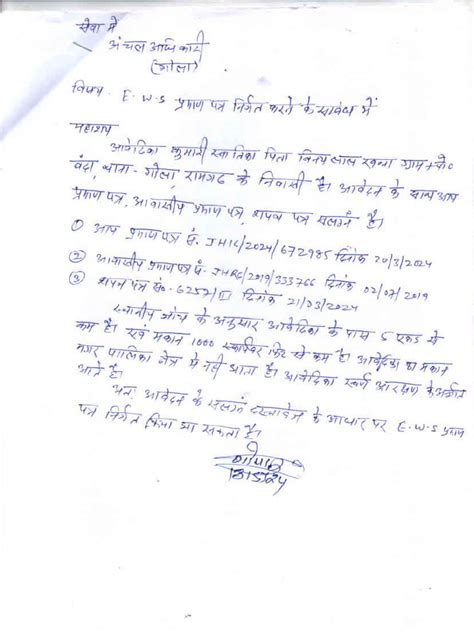 सेवा में
अंचल अधिकारी
(गोला)
विषय- E.W.S प्रमाण पत्र निर्गत करने के संबंध में
महाशय
आवेदिका कुमारी स्वातिका पिता विनय लाल ग्राम+पो०
थाना- गोला, रामगढ के निवासी है। आवेदन के साथ आय
प्रमाण पत्र, आवासीय प्रमाण पत्र, शपथ पत्र संलग्न है।
① आय प्रमाण पत्र सं. JHIC/2024/672985 दिनांक 20/3/2024
② आवासीय प्रमाण पत्र सं. JHRC/2019/333766 दिनांक 02/07/2019
③ शपथ पत्र सं०- 6257/II दिनांक 21/03/2024
स्थानीय जाँच के अनुसार आवेदिका के पास 5 एकड से
कम है। एवं मकान 1000 स्क्वायर फिट से कम है। आवेदिका का मकान
नगर पालिका क्षेत्र में नहीं आता है। आवेदिका आरक्षण के अन्तर्गत
आते है।
अतः आवेदन के संलग्न दस्तावेज के आधार पर E.W.S प्रमाण
पत्र निर्गत किया जा सकता है।